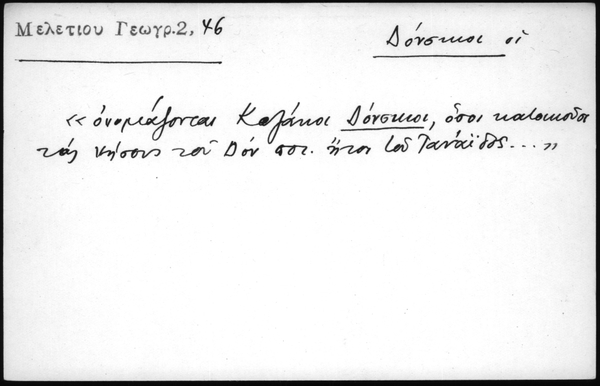 Μελετίου Γεωγρ.2, 46
Δόνσκιοι οἱ
«ὀνομάζονται Καζάκοι Δόνσκιοι, ὅσοι κατοικοῦσι
τὰς νήσους τοῦ Δὸν ποτ. ἤτοι τοῦ Τανάϊδος...»